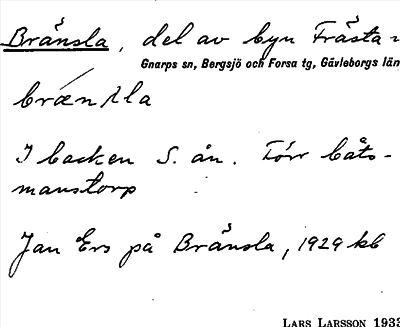 Bränsla, del av byn Frästa:
Gnarps sn, Bergsjö och Forsa tg, Gävleborgs län
I backen S. ån. Förr båts-
manstorp
Jan Ers på Bränsla, 1929 kb
LARS LARSSON 1933